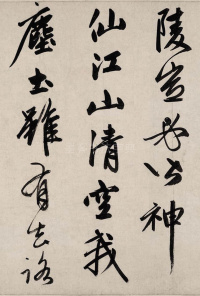 陵豈必皆神
仙江山清空我
塵土雖有去路